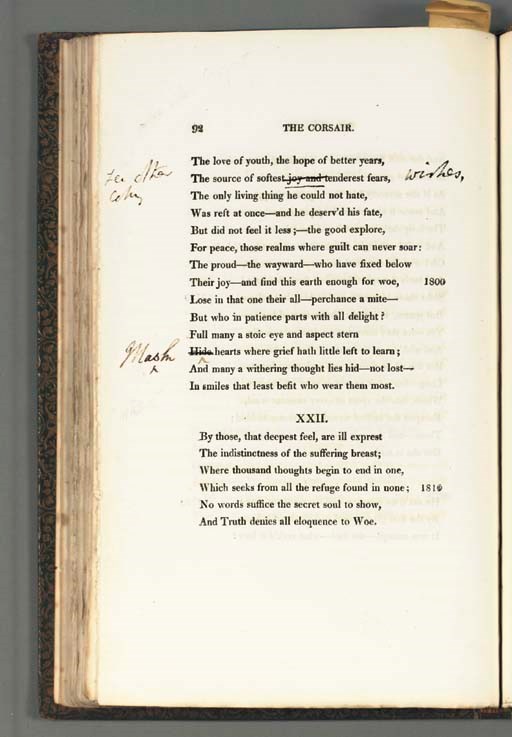 92 THE CORSAIR.
The love of youth, the hope of better years,
The source of softest joy and tenderest fears, wishes,
The only living thing he could not hate,
Was reft at once—and he deserv'd his fate,
But did not feel it less;—the good explore,
For peace, those realms where guilt can never soar:
The proud—the wayward—who have fixed below
Their joy—and find this earth enough for woe, 1800
Lose in that one their all—perchance a mite—
But who in patience parts with all delight?
Full many a stoic eye and aspect stern
Mask Hide hearts where grief hath little left to learn;
And many a withering thought lies hid—not lost—
In smiles that least befit who wear them most.
XXII.
By those, that deepest feel, are ill exprest
The indistinctness of the suffering breast;
Where thousand thoughts begin to end in one,
Which seeks from all the refuge found in none; 1810
No words suffice the secret soul to show,
And Truth denies all eloquence to Woe.